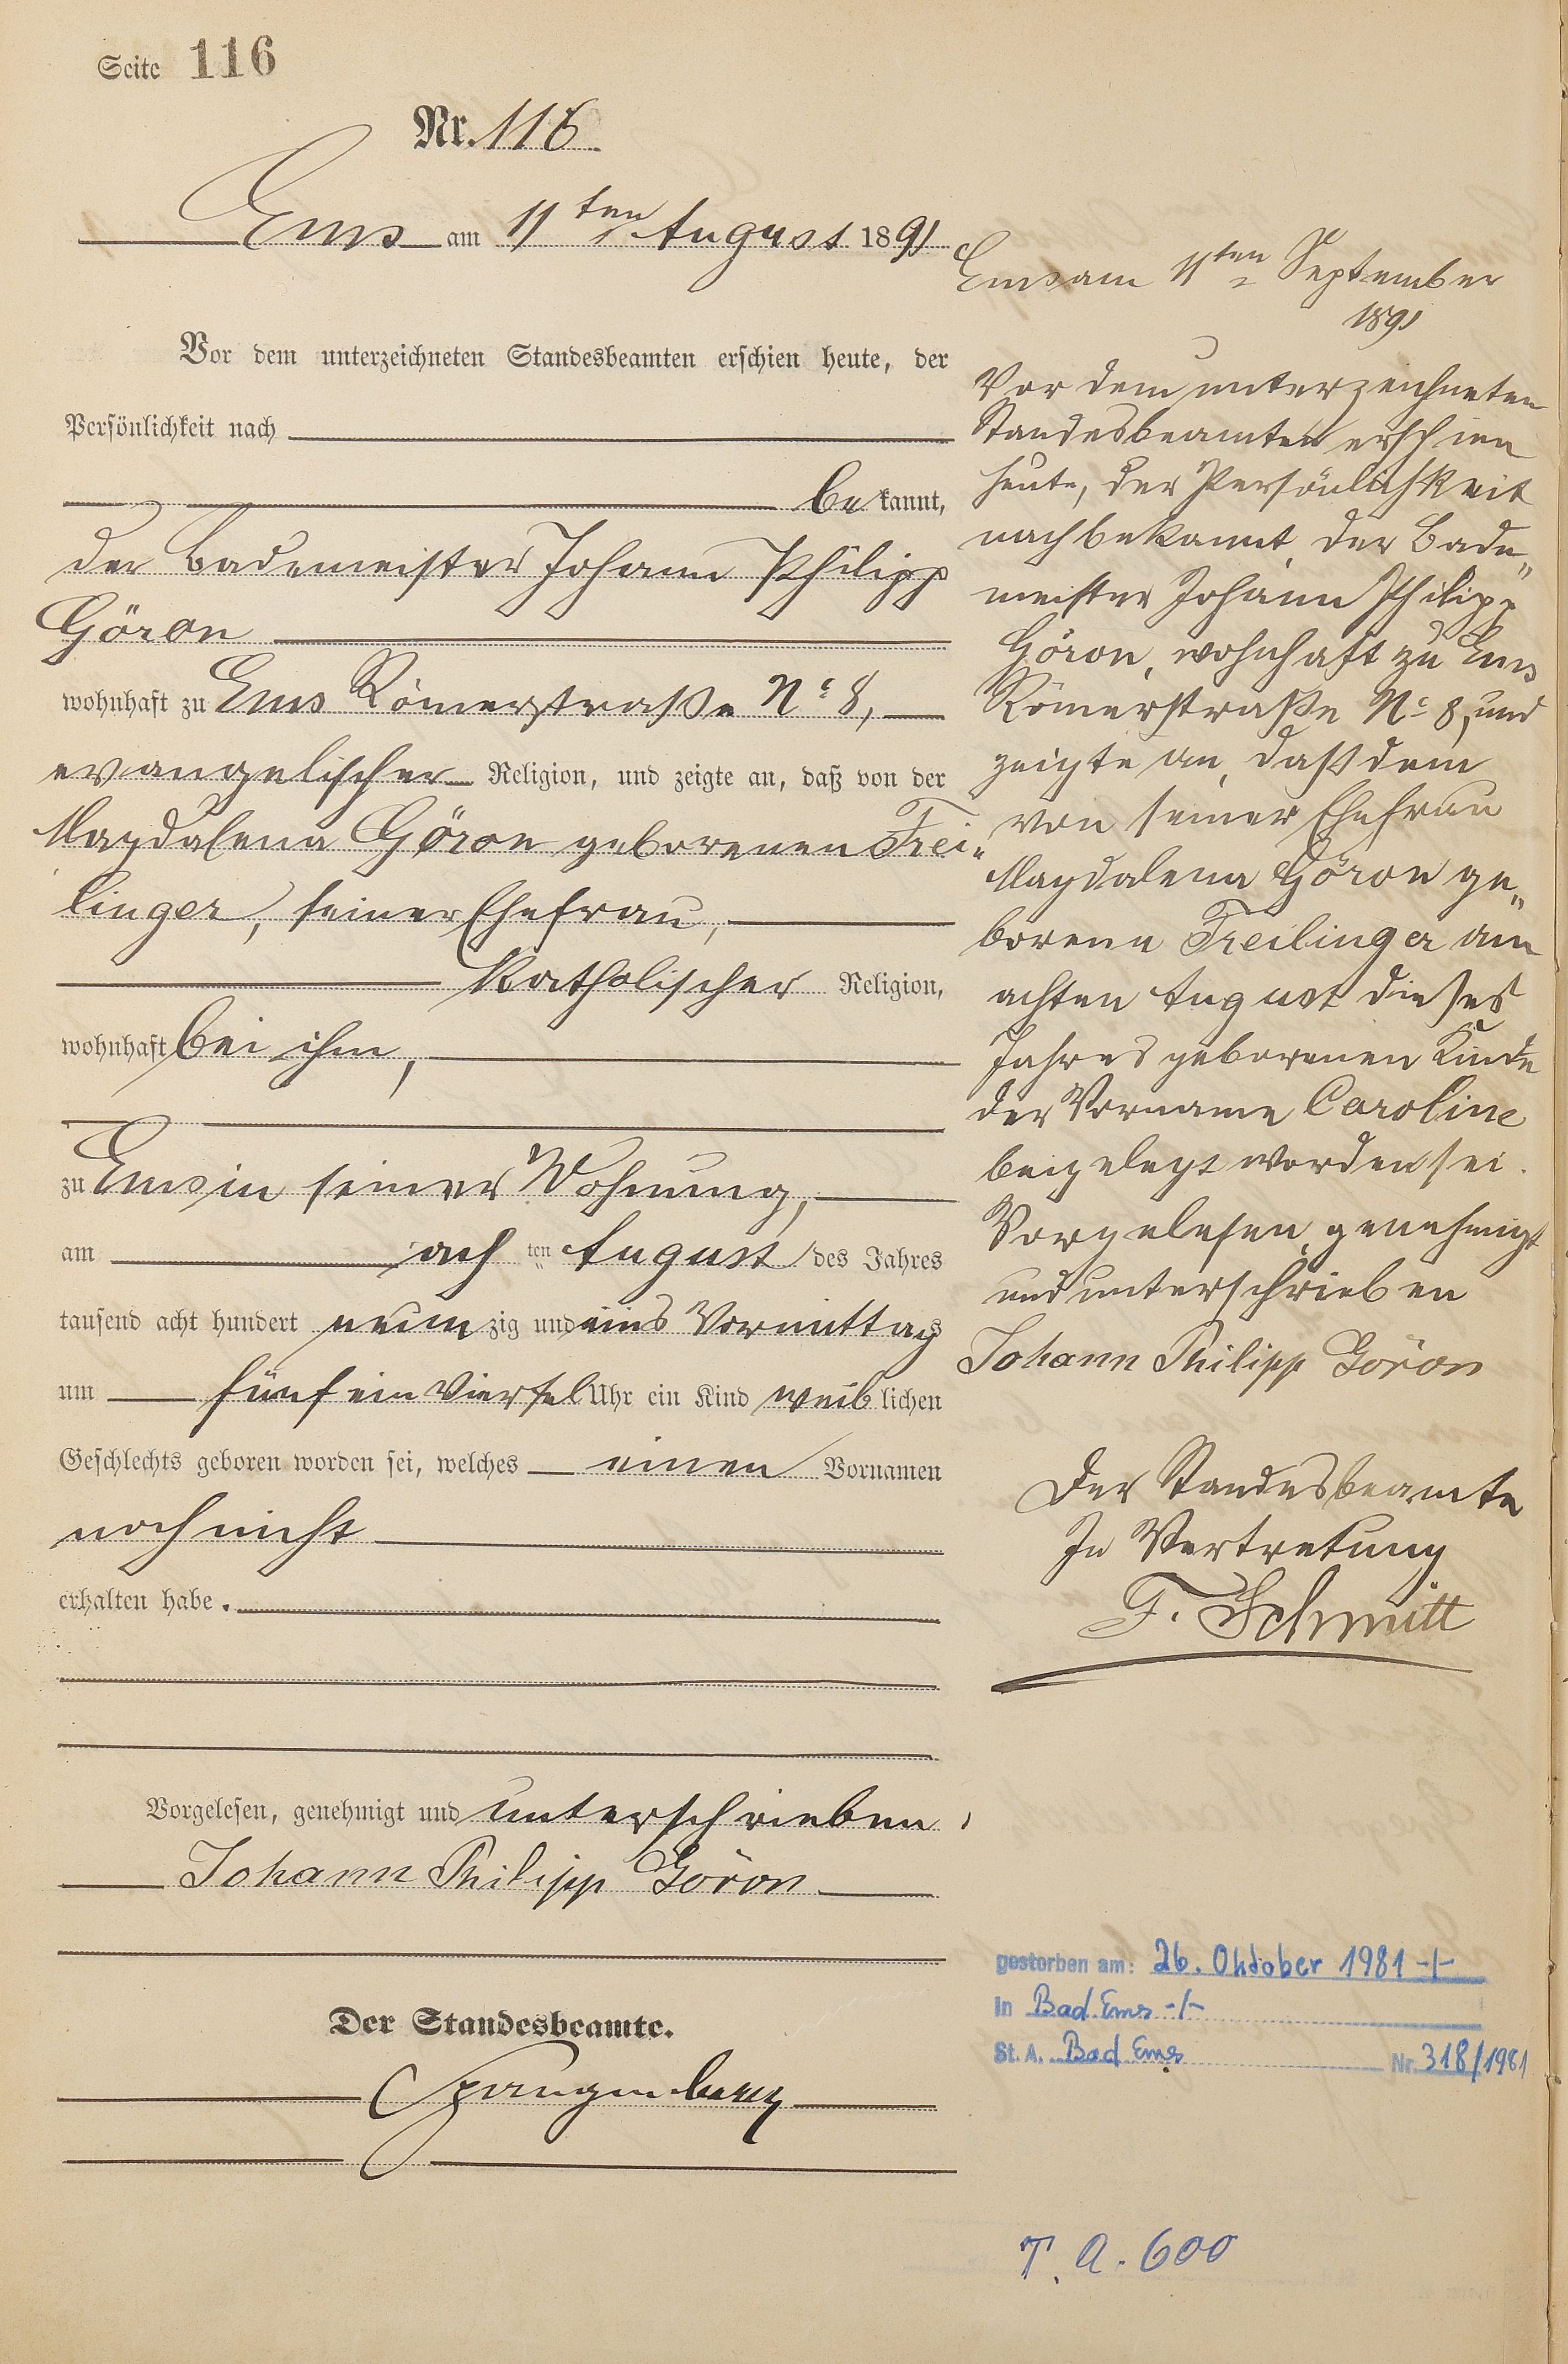 Seite 116
Nr. 116
Ems am 11ten August 1891
Vor dem unterzeichneten Standesbeamten erschien heute, der
Persönlichkeit nach
bekannt,
der Bademeister Johann Philipp
Göron
wohnhaft zu Ems Römerstraße No 8,
evangelischer Religion, und zeigte an, daß von der
Magdalena Göron geborenen Frei„
linger, seiner Ehefrau,
katholischer Religion,
wohnhaft bei ihm,
zu Ems in seiner Wohnung,
am achten August des Jahres
tausend acht hundert neunzig und eins Vormittags
um fünf ein Viertel Uhr ein Kind weiblichen
Geschlechts geboren worden sei, welches einen Vornamen
noch nicht
erhalten habe.
Vorgelesen, genehmigt und unterschrieben,
Johann Philipp Göron
Der Standesbeamte.
Spangenberg
Ems am 11ten September
1891
Vor dem unterzeichneten
Standesbeamten erschien
heute, der Persönlichkeit
nach bekannt, der Bade„
meister Johann Philipp
Göron, wohnhaft zu Ems
Römerstraße No 8, und
zeigte an, daß dem
von seiner Ehefrau
Magdalena Göron ge„
borene Freilinger am
achten August dieses
Jahres geborenen Kinde
der Vorname Caroline
beigelegt worden sei.
Vorgelesen, genehmigt
und unterschrieben
Johann Philipp Göron
Der Standesbeamte
In Vertretung
F. Schmitt
gestorben am: 26. Oktober 1981 -/-
in Bad Ems -/-
St. A. Bad Ems Nr. 318/1981
T. A. 600